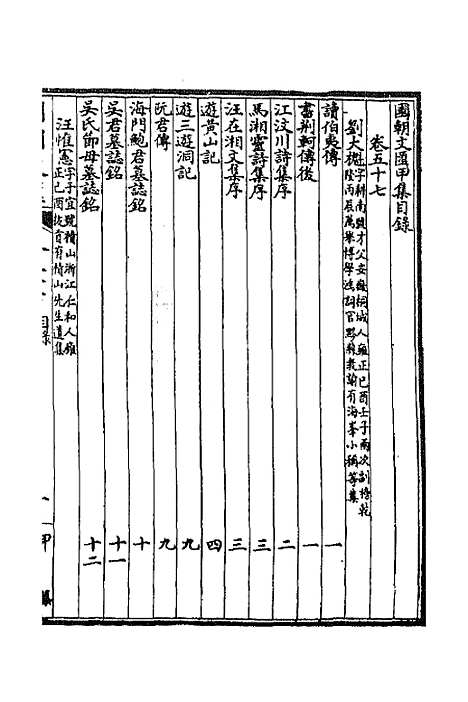 國朝文匯甲集目錄
卷五十七
劉大櫆字耕南號才父安徽桐城人雍正己酉壬子兩次副榜乾隆丙辰薦舉博學鴻詞官黟縣教諭有海峯小稱等集
讀伯夷傳 一
書荆軻傳後 一
江汶川詩集序 二
馬湘靈詩集序 三
汪在湘文集序 三
遊黃山記 四
遊三遊洞記 九
阮君傳 九
海門鮑君墓誌銘 十
吳君墓誌銘 十一
吳氏節母墓誌銘 十二
汪惟憲字子宜號積山浙江仁和人雍正己酉拔貢有積山先生遺集
目錄
甲集